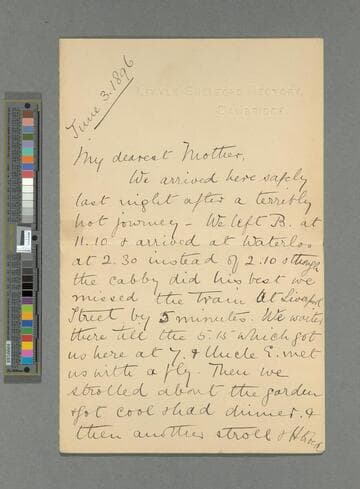 June 3. 1896
LITTLE SHELFORD RECTORY,
CAMBRIDGE.
My dearest Mother,
We arrived here safely
last night after a terribly
hot journey - We left B. at
11.10 & arrived at Waterloo
at 2.30 instead of 2.10 & though
the cabby did his best we
missed the train at Liverpool
Street by 5 minutes. We waited
there till the 5.15 which got
us here at 7. & Uncle E. met
us with a fly. Then we
strolled about the garden
& got cool & had dinner. &
then another stroll &